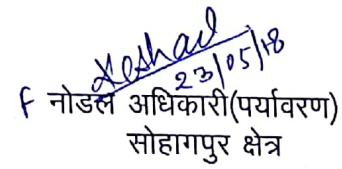 23/05/18
F नोडल अधिकारी(पर्यावरण)
सोहागपुर क्षेत्र